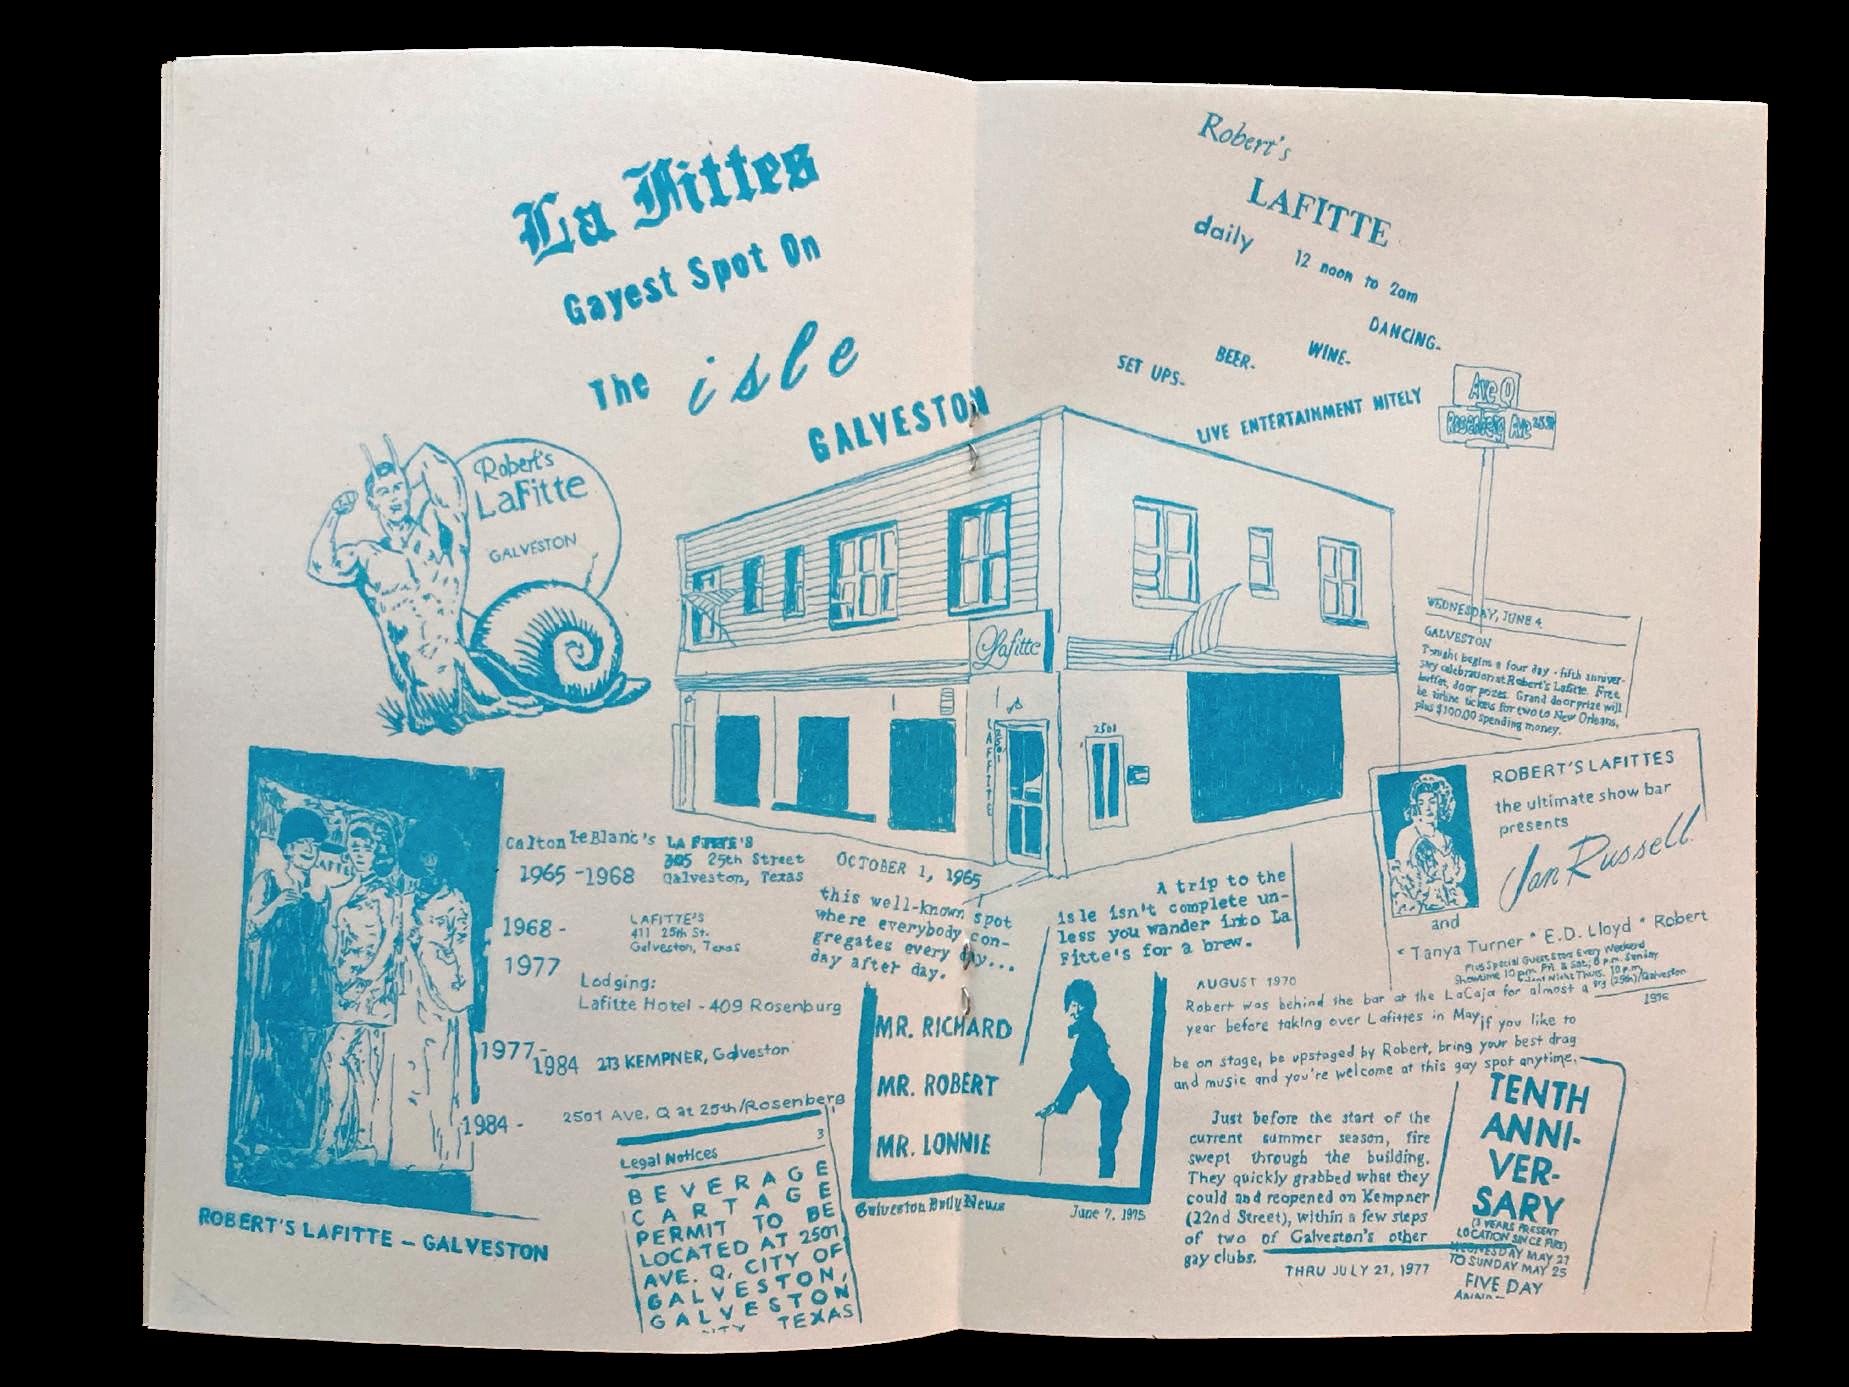 La Fittes
Gayest Spot On
The isle
GALVESTON
Robert's
LaFitte
GALVESTON
ROBERT'S LAFITTE - GALVESTON
Calton LeBlanc's LA FITTE'S
1965 - 1968
25th Street
Galveston, Texas
1968 -
1977
LAFITTE'S
411 25th St.
Galveston, Texas
Lodging:
Lafitte Hotel - 409 Rosenburg
1977-
1984
213 KEMPNER, Galveston
1984 -
2501 Ave. Q at 25th/Rosenberg
3
Legal Notices
BEVERAGE
CARTAGE
PERMIT TO BE
LOCATED AT 2501
AVE. Q, CITY OF
GALVESTON,
GALVESTON
TEXAS
OCTOBER 1, 1965
this well-known spot
where everybody con-
gregates every day...
day after day.
MR. RICHARD
MR. ROBERT
MR. LONNIE
Galveston Daily News
June 7, 1975
Lafitte
LAFITTE
2501
2501
Robert's
LAFITTE
daily 12 noon to 2am
DANCING-
SET UPS- BEER- WINE-
LIVE ENTERTAINMENT NITELY
Ave Q
Rosenberg Ave 25 St
WEDNESDAY, JUNE 4
GALVESTON
Tonight begins a four day - fifth anniver-
sary celebration at Robert's Lafitte. Free
buffet, door prizes. Grand door prize will
be airline tickets for two to New Orleans,
plus $100.00 spending money.
ROBERT'S LAFITTES
the ultimate show bar
presents
Jan Russell
and
* Tanya Turner * E.D. Lloyd * Robert
Plus Special Guest Stars Every Weekend
Showtime 10 p.m. Fri. & Sat.; 8 p.m. Sunday
Talent Night Thurs. 10 p.m.
(25th)/Galveston
1976
A trip to the
isle isn't complete un-
less you wander into La
Fitte's for a brew.
AUGUST 1970
Robert was behind the bar at the LaCaja for almost a
year before taking over Lafittes in May, if you like to
be on stage, be upstaged by Robert, bring your best drag
and music and you're welcome at this gay spot anytime.
Just before the start of the
current summer season, fire
swept through the building.
They quickly grabbed what they
could and reopened on Kempner
(22nd Street), within a few steps
of two of Galveston's other
gay clubs.
THRU JULY 21, 1977
TENTH
ANNI-
VER-
SARY
(3 YEARS PRESENT
LOCATION SINCE FIRE)
WEDNESDAY MAY 21
TO SUNDAY MAY 25
FIVE DAY